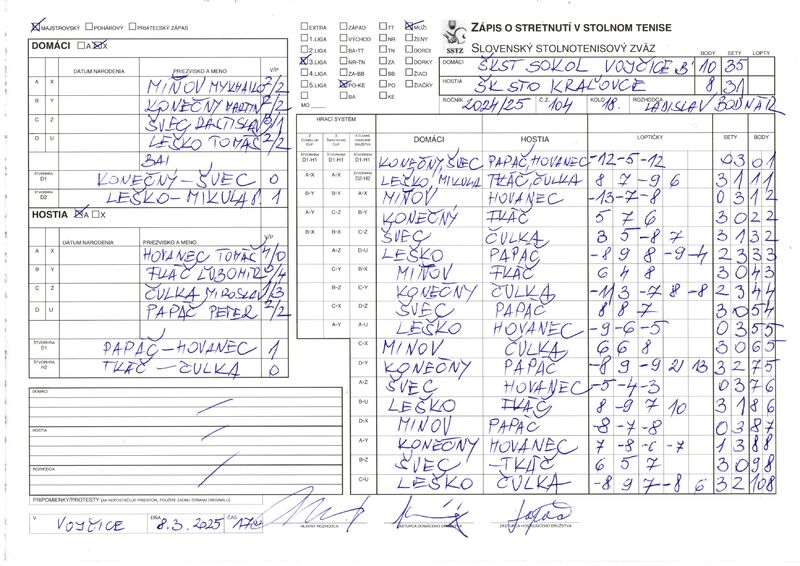 MAJSTROVSKÝ POHÁROVÝ PRIATEĽSKÝ ZÁPAS
EXTRA ZÁPAD TT MUŽI
1.LIGA VÝCHOD NR ŽENY
2.LIGA BA-TT TN DORCI
3.LIGA NR-TN ZA DORKY
4.LIGA ZA-BB BB ŽIACI
5.LIGA PO-KE PO ŽIAČKY
BA KE
MO
SSTZ
ZÁPIS O STRETNUTÍ V STOLNOM TENISE
SLOVENSKÝ STOLNOTENISOVÝ ZVÄZ
BODY SETY LOPTY
DOMÁCI ŠKST SOKOL VOJČICE B' 10 35
HOSTIA ŠK STO KRAĽOVCE 8 31
ROČNÍK 2024/25 Č.Z. 104 KOLO 18. ROZHODCA LADISLAV BODNÁR
DOMÁCI A X
DÁTUM NARODENIA PRIEZVISKO A MENO V/P
A X MIŇOV MYKHAILO 2/2
B Y KONEČNÝ MARTIN 2/2
C Z ŠVEC RASTISLAV 3/1
D U LEŠKO TOMÁŠ 2/2
BAI
ŠTVORHRA D1 KONEČNÝ-ŠVEC 0
ŠTVORHRA D2 LEŠKO-MIKULA Š. 1
HOSTIA A X
DÁTUM NARODENIA PRIEZVISKO A MENO V/P
A X HOVANEC TOMÁŠ 4/0
B Y TKÁČ ĽUBOMÍR 0/4
C Z ČULKA MIROSLAV 1/3
D U PAPÁČ PETER 2/2
ŠTVORHRA D1 PAPÁČ-HOVANEC 1
ŠTVORHRA H2 TKÁČ-ČULKA 0
DOMÁCI
HOSTIA
ROZHODCA
PRIPOMIENKY/PROTESTY (AK NEPOSTAČUJE PRIESTOR, POUŽITE ZADNÚ STRANU ORIGINÁLU)
HRACÍ SYSTÉM
DOMÁCI HOSTIA LOPTIČKY SETY BODY
D1-H1 D1-H1 D1-H1 KONEČNÝ, ŠVEC PAPÁČ, HOVANEC -12 -5 -12 0 3 0 1
A-X A-X D2-H2 LEŠKO, MIKULA TKÁČ, ČULKA 8 7 -9 6 3 1 1 1
B-Y B-Y A-X MIŇOV HOVANEC -13 -7 -8 0 3 1 2
A-Y C-Z B-Y KONEČNÝ TKÁČ 5 7 6 3 0 2 2
B-X B-X C-Z ŠVEC ČULKA 3 5 -8 7 3 1 3 2
A-Z D-U LEŠKO PAPÁČ -8 9 8 -9 -4 2 3 3 3
C-Y B-X MIŇOV TKÁČ 6 4 8 3 0 4 3
B-Z C-Y KONEČNÝ ČULKA -11 3 -7 8 -8 2 3 4 4
C-X D-Z ŠVEC PAPÁČ 8 8 7 3 0 5 4
A-Y A-U LEŠKO HOVANEC -9 -6 -5 0 3 5 5
C-X MIŇOV ČULKA 6 6 8 3 0 6 5
D-Y KONEČNÝ PAPÁČ -8 9 -9 21 13 3 2 7 5
A-Z ŠVEC HOVANEC -5 -4 -3 0 3 7 6
B-U LEŠKO TKÁČ 8 -9 7 10 3 1 8 6
D-X MIŇOV PAPÁČ -8 -7 -8 0 3 8 7
A-Y KONEČNÝ HOVANEC 7 -8 -6 -7 1 3 8 8
B-Z ŠVEC TKÁČ 6 5 7 3 0 9 8
C-U LEŠKO ČULKA -8 9 7 -8 6 3 2 10 8
V VOJČICE DŇA 8.3.2025 ČAS
HLAVNÝ ROZHODCA ZÁSTUPCA DOMÁCEHO DRUŽSTVA ZÁSTUPCA HOSŤUJÚCEHO DRUŽSTVA